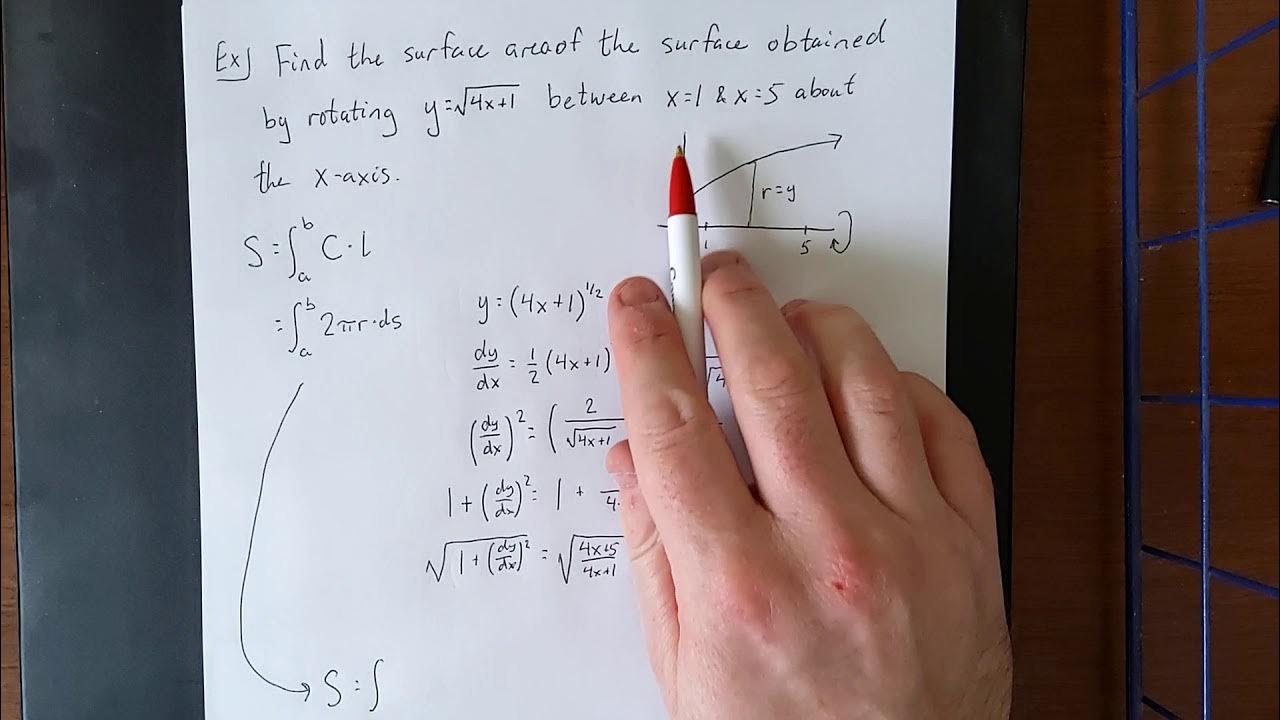 Ex) Find the surface area of the surface obtained
by rotating y=√(4x+1) between x=1 & x=5 about
the x-axis.
r=y
1 5
S=∫_a^b C·l
=∫_a^b 2πr·ds
y=(4x+1)^(1/2)
dy/dx = 1/2 (4x+1)
(dy/dx)^2 = (2/√(4x+1)
1+(dy/dx)^2 = 1 +
√(1+(dy/dx)^2) = √((4x+5)/(4x+1))
S=∫